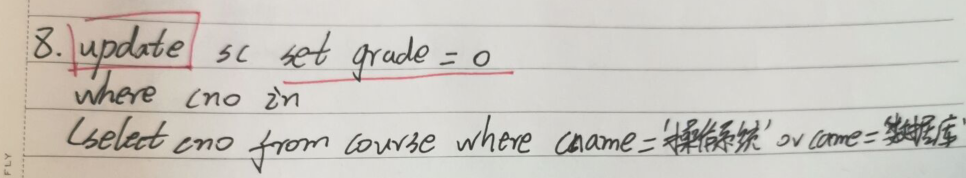 8. update sc set grade = 0
where cno in
(select cno from course where cname='操作系统' or came='数据库'
FLY